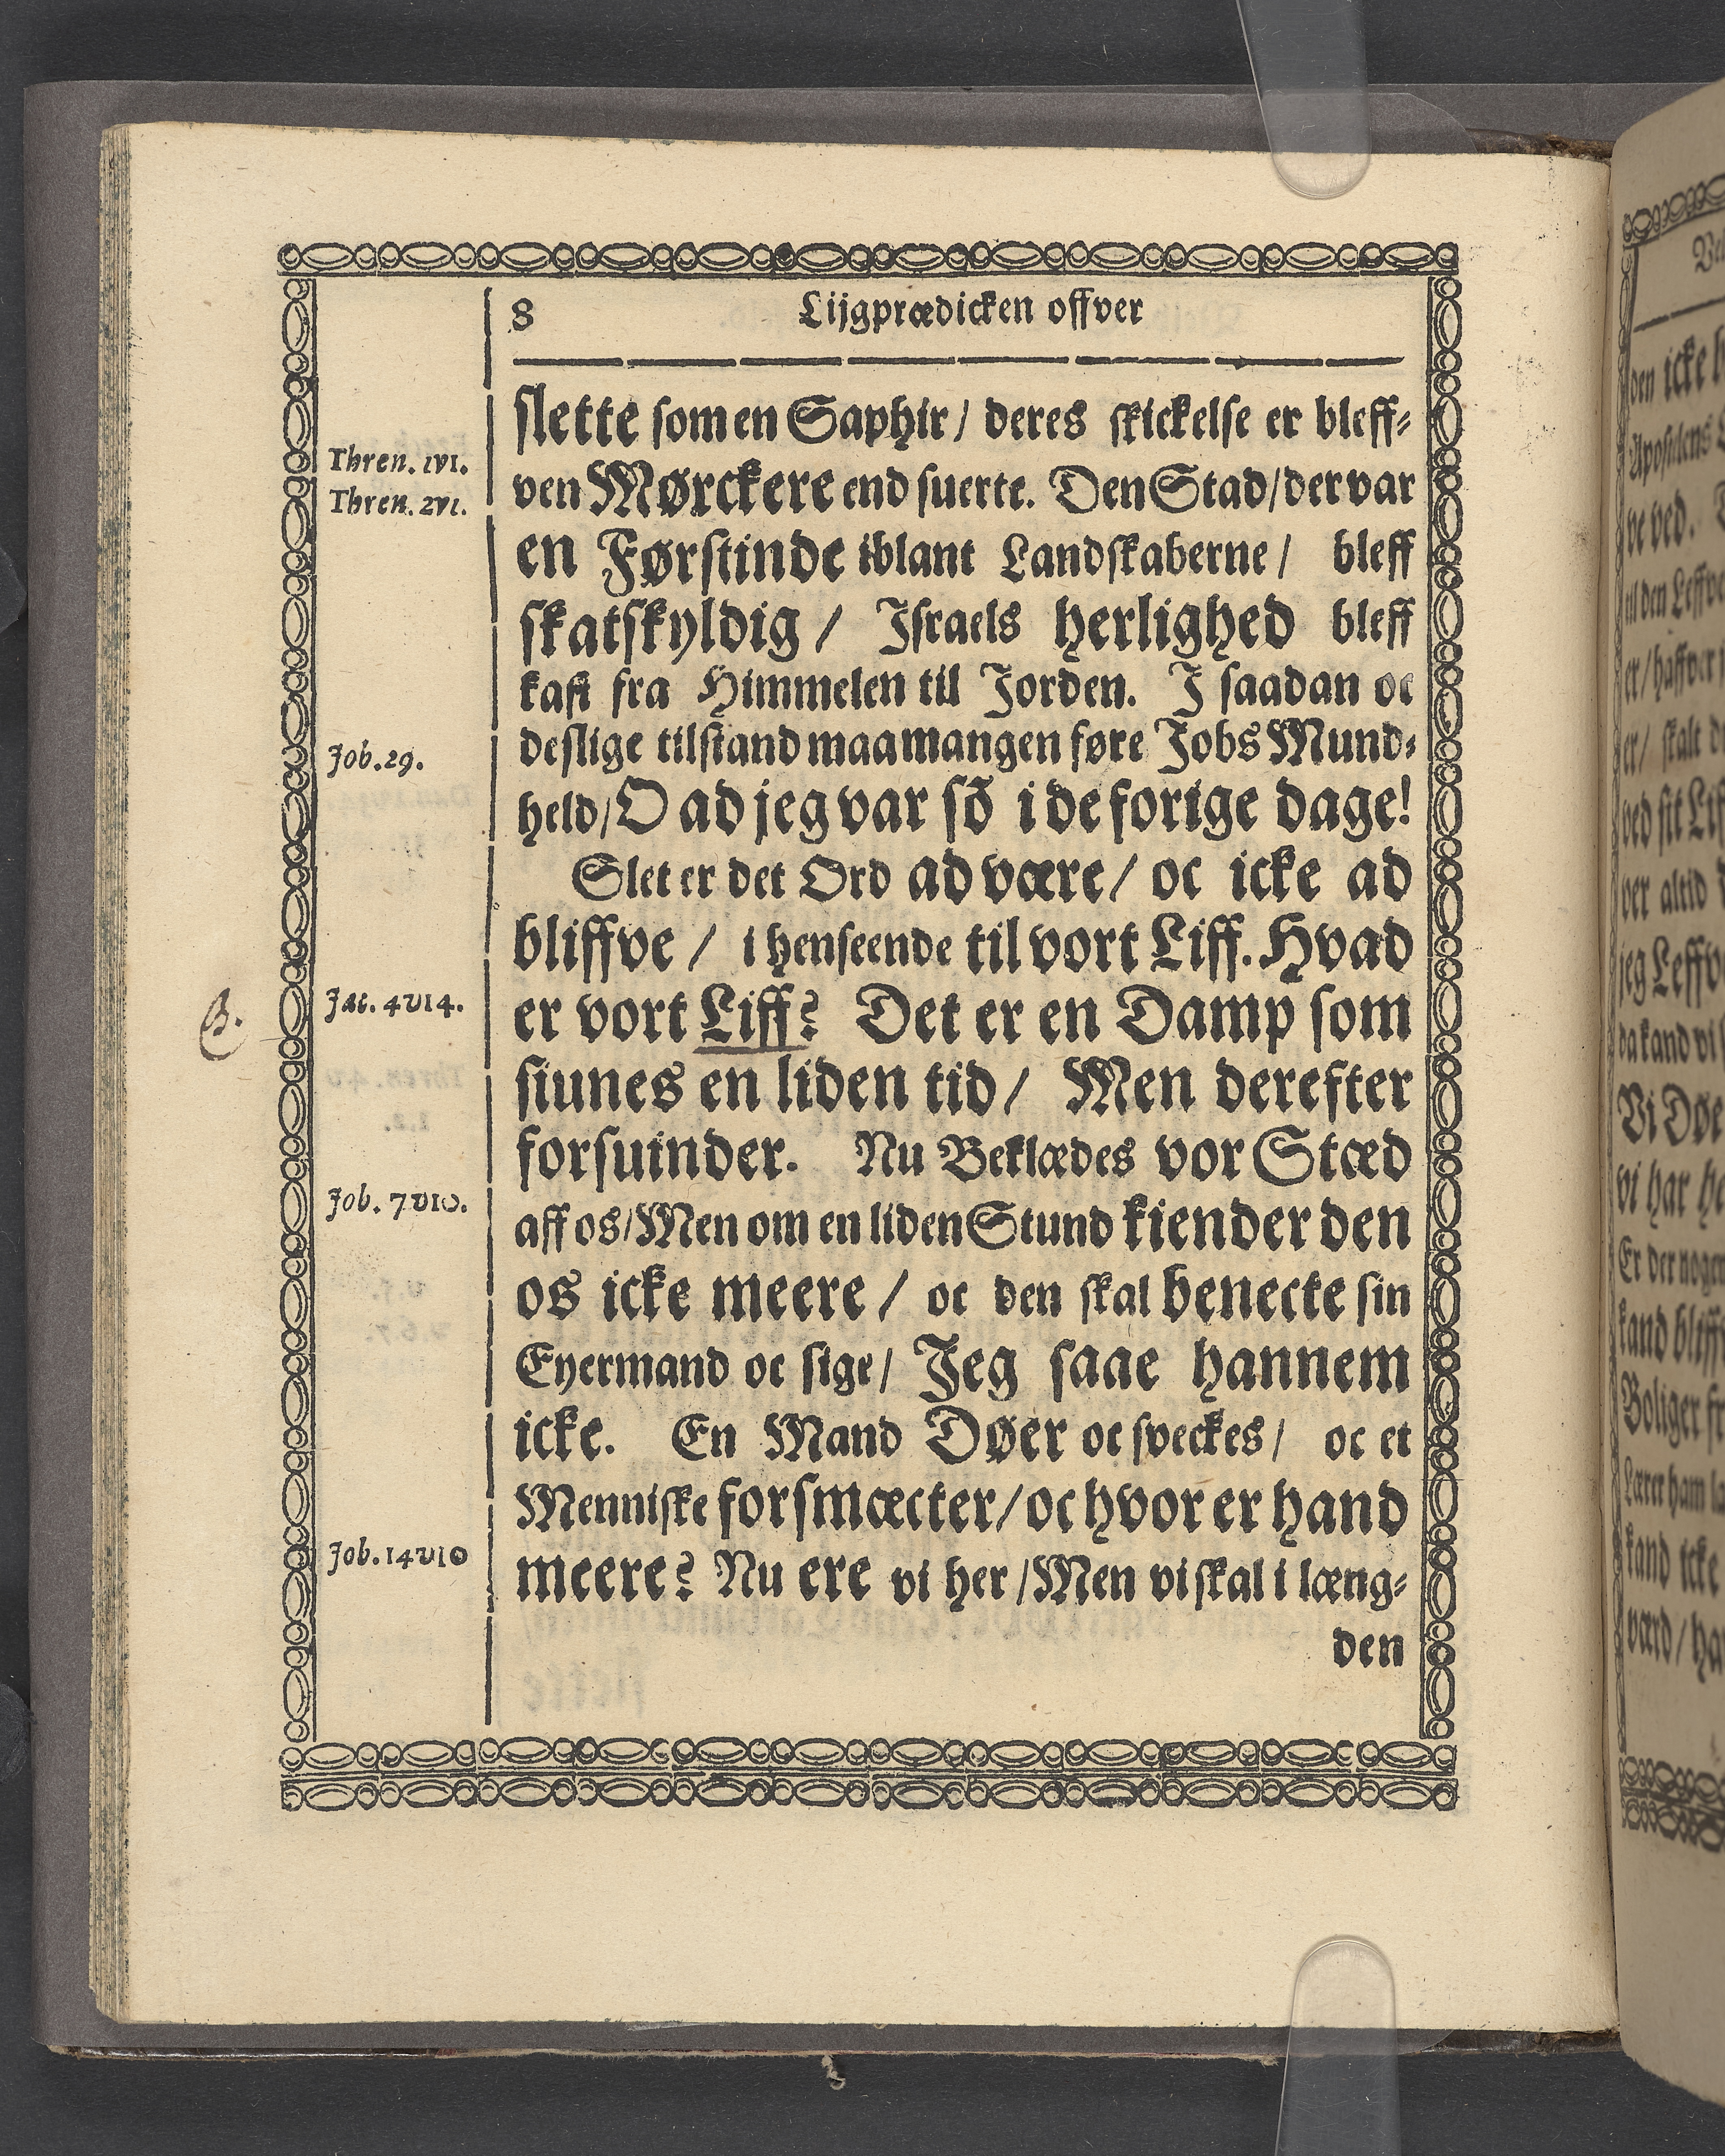 8
Lijgprædicken offver
slette som en Saphir / deres skickelse er bleff-
Thren. 1v1.
ven Mørckere end suerte. Den Stad / der var
Thren. 2v1.
en Førstinde iblant Landskaberne / bleff
skatskyldig / Israels herlighed bleff
kast fra Himmelen til Jorden. I saadan oc
Job. 29.
deslige tilstand maa mangen føre Jobs Mund-
held / O ad jeg var sõ i de forige dage!
Slet er det Ord ad være / oc icke ad
bliffve / i henseende til vort Liff. Hvad
Jac. 4v14.
er vort Liff? Det er en Damp som
siunes en liden tid / Men derefter
forsuinder. Nu Beklædes vor Stæd
Job. 7v10.
aff os / Men om en liden Stund kiender den
os icke meere / oc den skal benecte sin
Eyermand oc sige / Jeg saae hannem
icke. En Mand Døer oc sveckes / oc et
Menniske forsmæcter / oc hvor er hand
Job. 14v10
meere? Nu ere vi her / Men vi skal i læng-
den